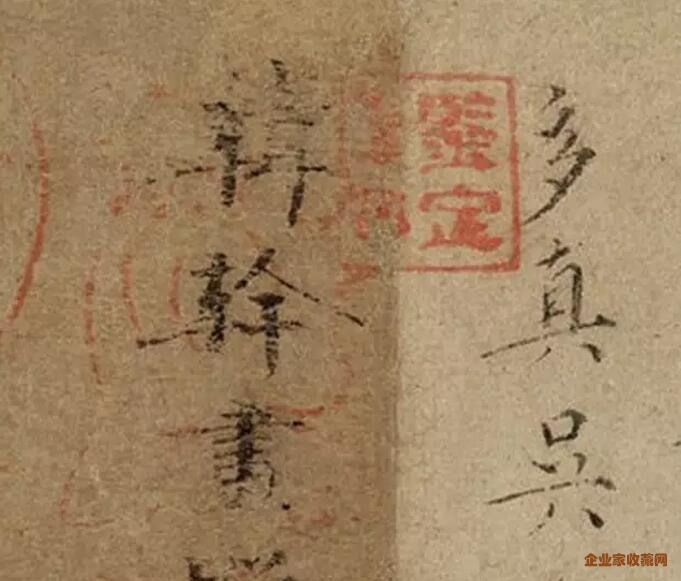 多真吳
鑒定
韓幹畫
企业家收藏网